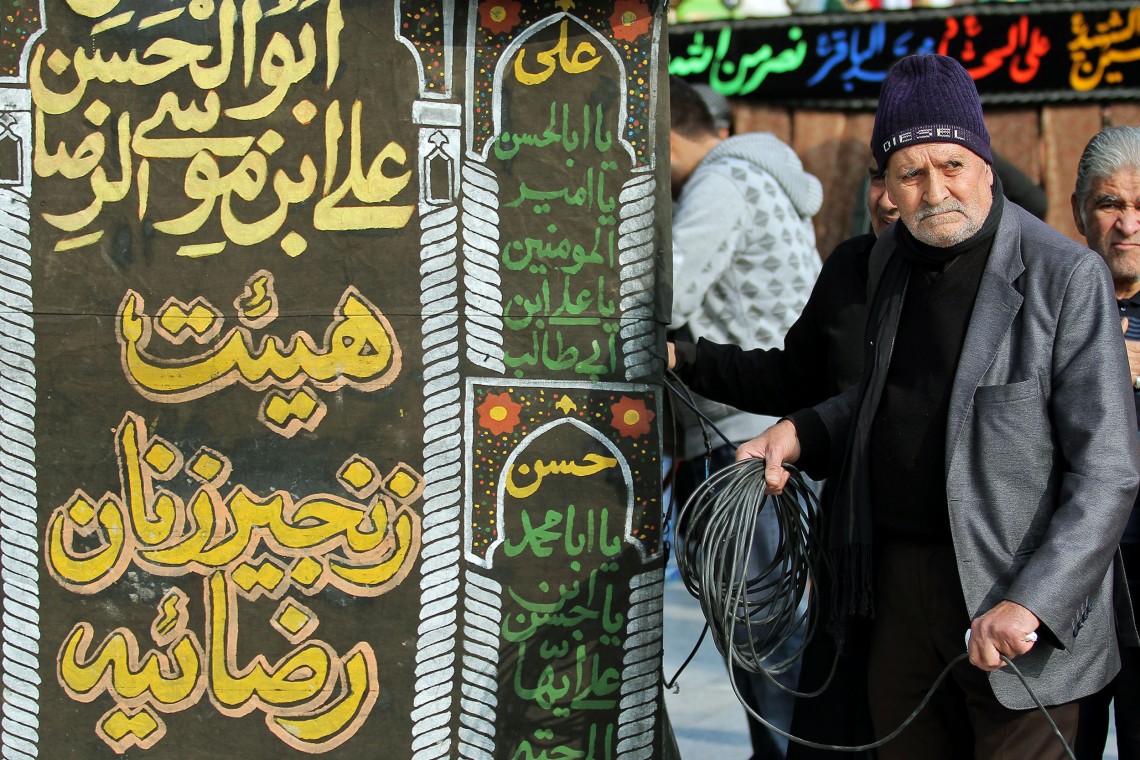 ابوالحسن
علی ابن موسی الرضا
هیئت
زنجیرزنان
رضائیه
علی
یا ابالحسن
یا امیر
المومنین
یا علی ابن
ابی طالب
حسن
یا ابا محمد
یا حسن ابن
علی ایها
المجتبی
نصر من الله
محمد الباقر
علی
DIESEL